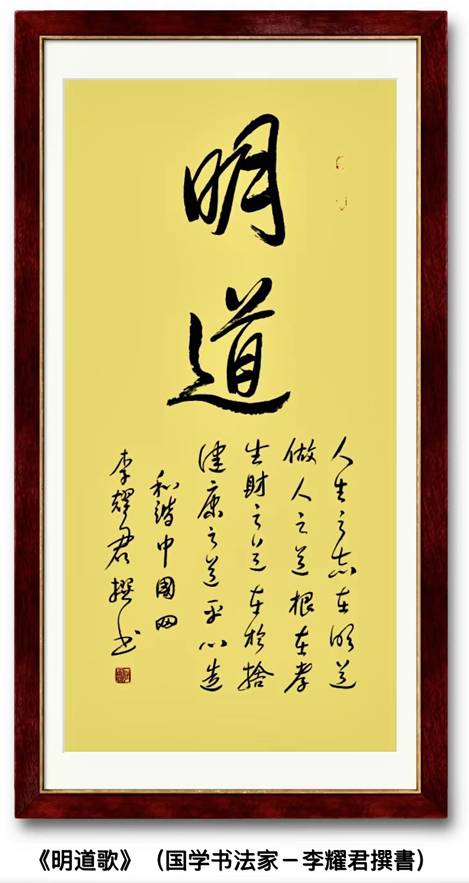 明
道
人生之志在明道
做人之道根在孝
生財之道在於捨
健康之道平心造
和諧中國网
李耀君撰书
《明道歌》（国学书法家－李耀君撰書）